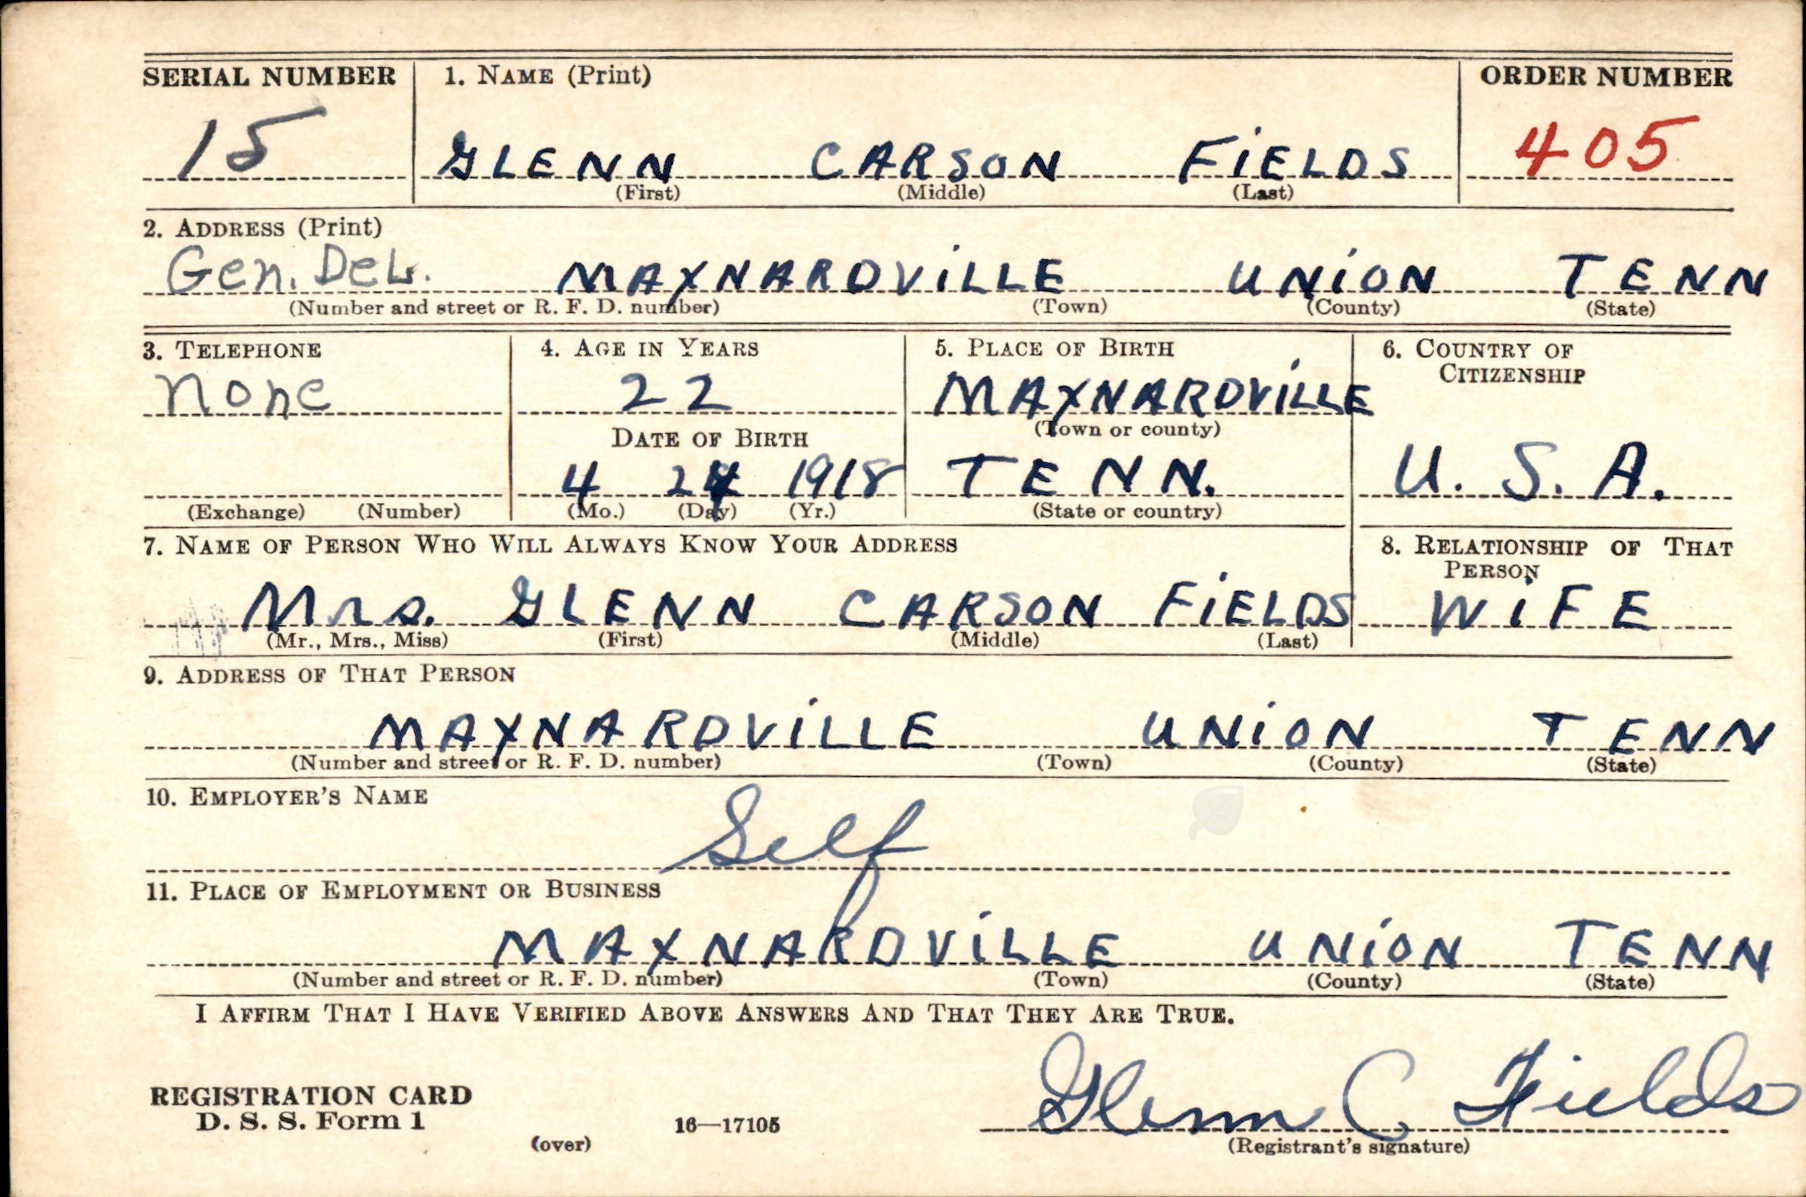 SERIAL NUMBER 1. NAME (Print) ORDER NUMBER
15 GLENN CARSON FIELDS 405
(First) (Middle) (Last)
2. ADDRESS (Print)
Gen. Del. MAYNARDVILLE UNION TENN
(Number and street or R. F. D. number) (Town) (County) (State)
3. TELEPHONE 4. AGE IN YEARS 5. PLACE OF BIRTH 6. COUNTRY OF
CITIZENSHIP
None 22 MAYNARDVILLE
DATE OF BIRTH (Town or county)
4 24 1918 TENN. U. S. A.
(Exchange) (Number) (Mo.) (Day) (Yr.) (State or country)
7. NAME OF PERSON WHO WILL ALWAYS KNOW YOUR ADDRESS 8. RELATIONSHIP OF THAT
PERSON
Mrs. GLENN CARSON FIELDS WIFE
(Mr., Mrs., Miss) (First) (Middle) (Last)
9. ADDRESS OF THAT PERSON
MAYNARDVILLE UNION TENN
(Number and street or R. F. D. number) (Town) (County) (State)
10. EMPLOYER'S NAME
Self
11. PLACE OF EMPLOYMENT OR BUSINESS
MAYNARDVILLE UNION TENN
(Number and street or R. F. D. number) (Town) (County) (State)
I AFFIRM THAT I HAVE VERIFIED ABOVE ANSWERS AND THAT THEY ARE TRUE.
REGISTRATION CARD
D. S. S. Form 1 16—17105 Glenn C Fields
(over) (Registrant's signature)